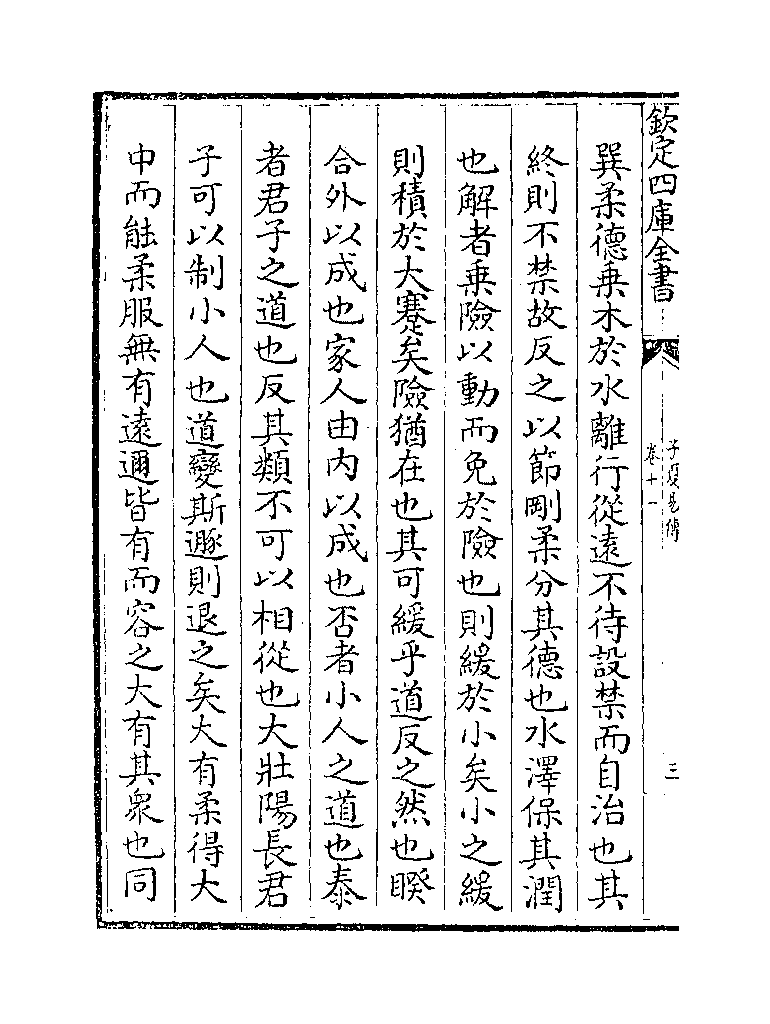 欽定四庫全書
子夏易傳
卷十一
三
巽柔德乗木於水離行從遠不待設禁而自治也其
終則不禁故反之以節剛柔分其德也水澤保其潤
也解者乗險以動而免於險也則緩於小矣小之緩
則積於大蹇矣險猶在也其可緩乎道反之然也睽
合外以成也家人由内以成也否者小人之道也泰
者君子之道也反其類不可以相從也大壯陽長君
子可以制小人也道變斯遯則退之矣大有柔得大
中而能柔服無有遠邇皆有而容之大有其衆也同